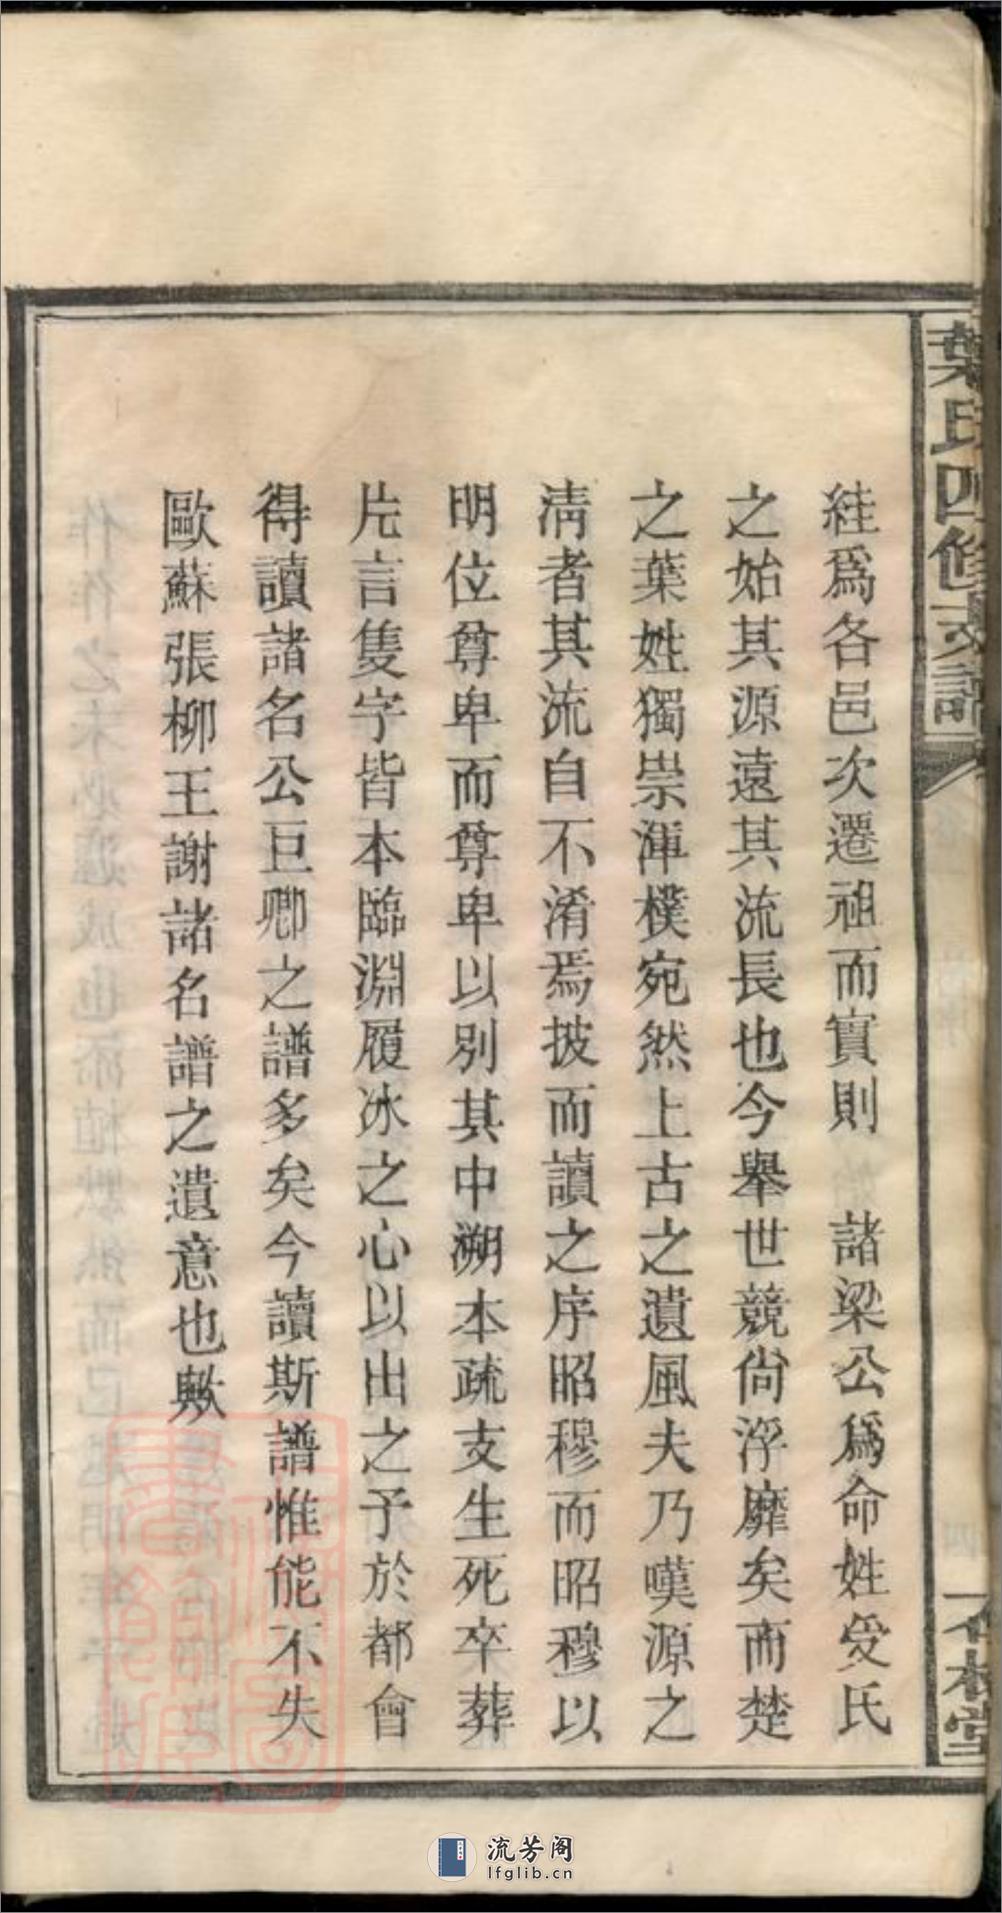 葉氏四修支譜
一本堂
絓爲各邑次遷祖而實則　諸梁公爲命姓受氏
之始其源遠其流長也今舉世競尙浮靡矣而楚
之葉姓獨崇渾樸宛然上古之遺風夫乃嘆源之
淸者其流自不淆焉披而讀之序昭穆而昭穆以
明位尊卑而尊卑以別其中溯本疏支生死卒葬
片言隻字皆本臨淵履冰之心以出之予於都會
得讀諸名公巨卿之譜多矣今讀斯譜惟能不失
歐蘇張柳王謝諸名譜之遺意也歟
流芳阁
lfglib.cn